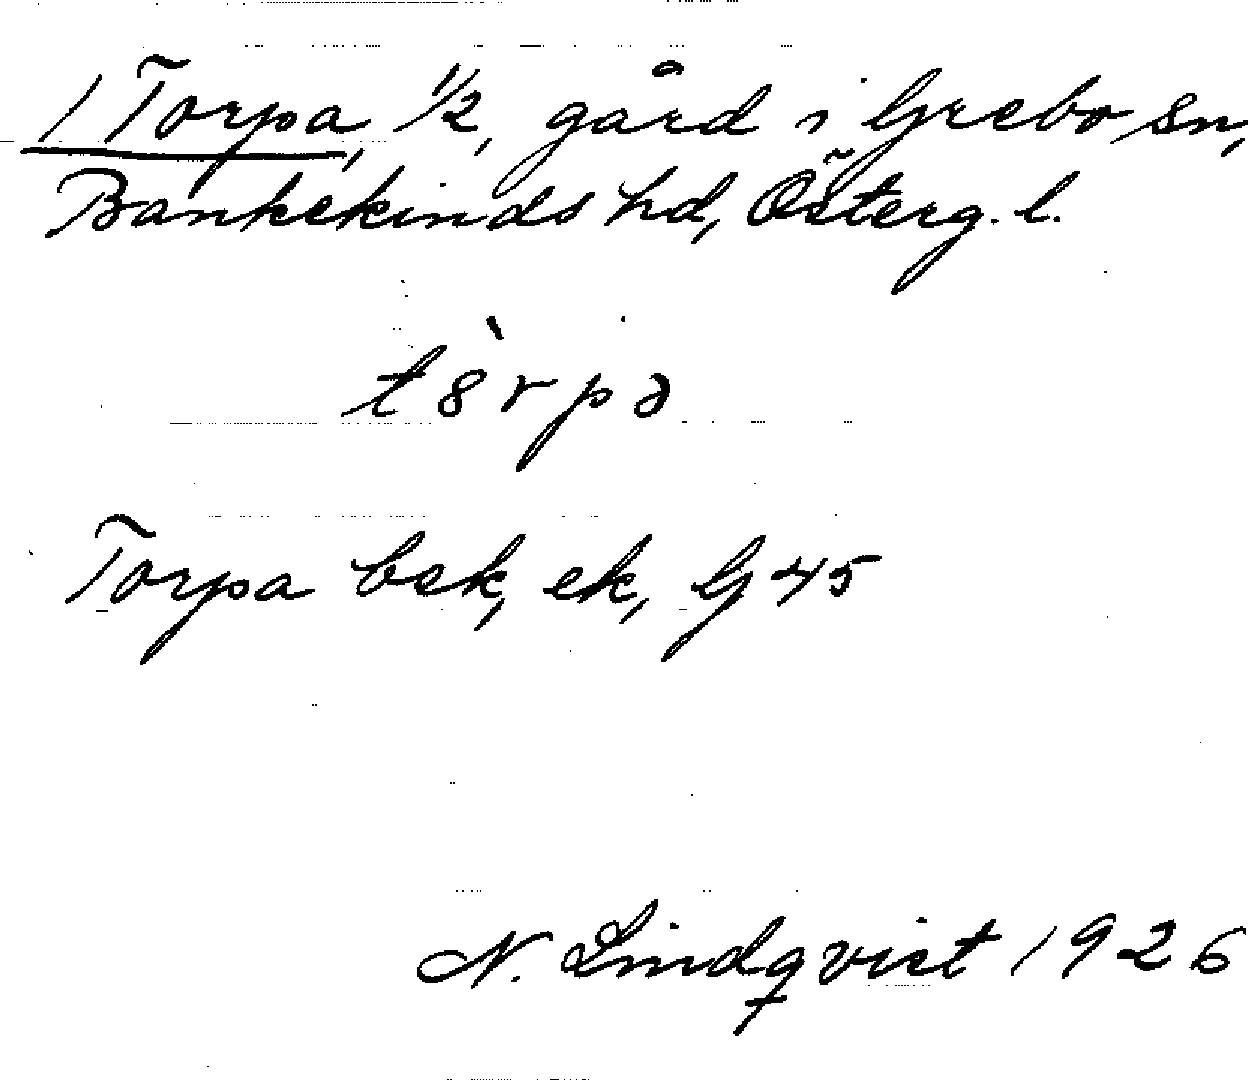 1 Torpa, 1/2, gård i Grebo sn,
Bankekinds hd, Österg. l.
tȣ̀rpə
Torpa bsk, ek, G 45
N. Lindqvist 1926